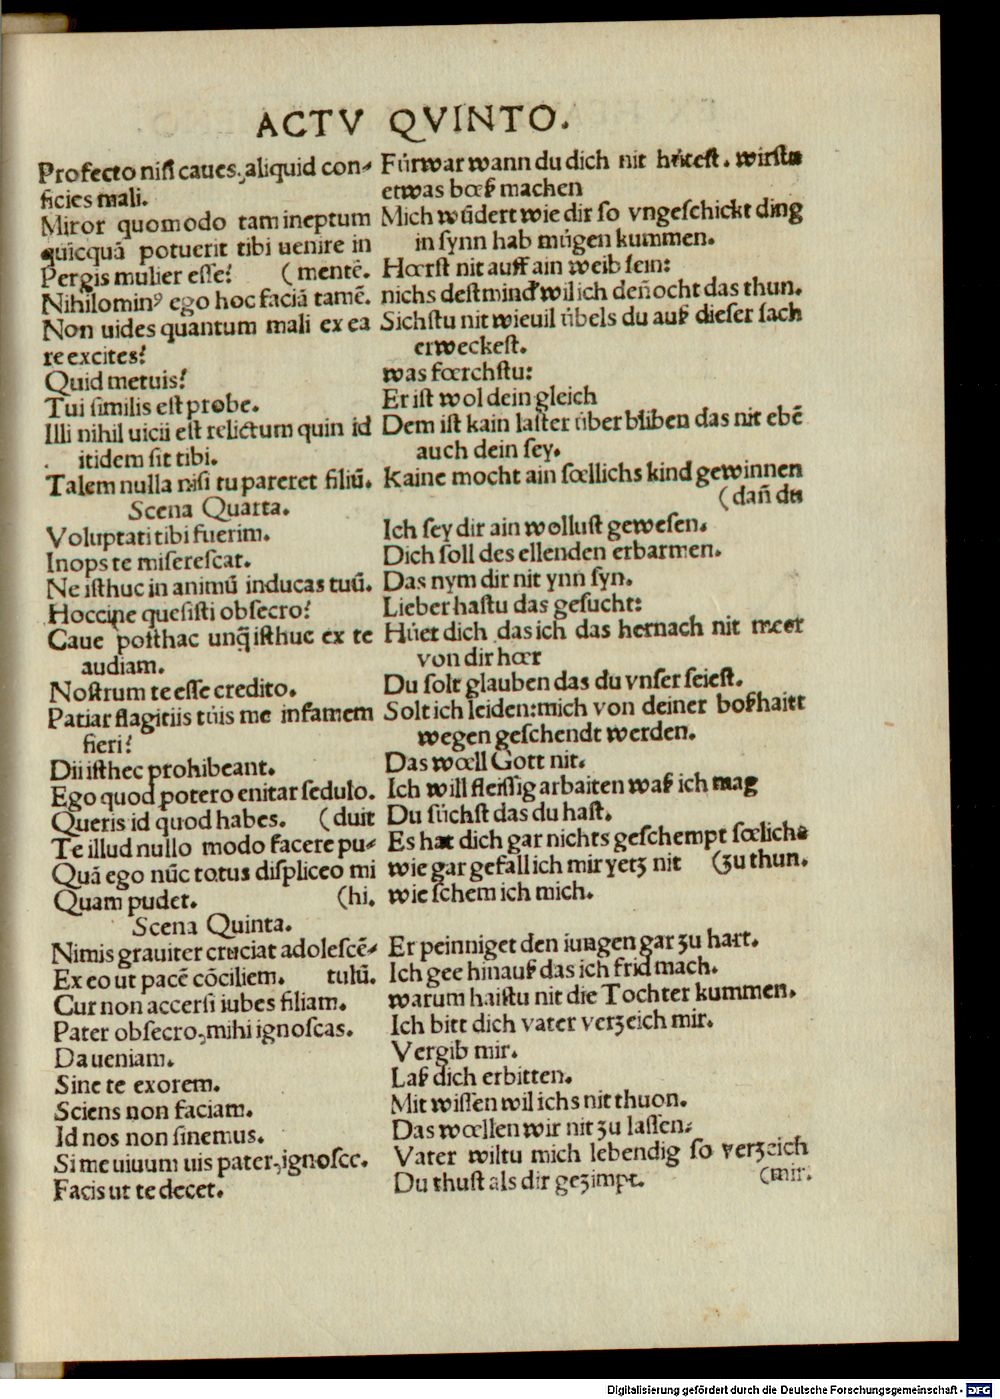 ACTV QVINTO.
Profecto niſi caues, aliquid con-
ficies mali.
Miror quomodo tam ineptum
quicquā potuerit tibi uenire in
Pergis mulier eſſe? (mentē.
Nihilominꝰ ego hoc faciā tamē.
Non uides quantum mali ex ea
re excites?
Quid metuis?
Tui ſimilis eſt probe.
Illi nihil uicii eſt relictum quin id
itidem ſit tibi.
Talem nulla niſi tu pareret filiū.
Scena Quarta.
Voluptati tibi fuerim.
Inops te miſereſcat.
Ne iſthuc in animū inducas tuū.
Hoccine queſiſti obſecro?
Caue poſthac unq̄ iſthuc ex te
audiam.
Noſtrum te eſſe credito.
Patiar flagitiis tuis me infamem
fieri?
Dii iſthec prohibeant.
Ego quod potero enitar ſedulo.
Queris id quod habes. (duit
Te illud nullo modo facere pu-
Quā ego nūc totus diſpliceo mi
Quam pudet. (hi.
Scena Quinta.
Nimis grauiter cruciat adoleſcē-
Ex eo ut pacē cōciliem. tulū.
Cur non accerſi iubes filiam.
Pater obſecro, mihi ignoſcas.
Da ueniam.
Sine te exorem.
Sciens non faciam.
Id nos non ſinemus.
Si me uiuum uis pater, ignoſce.
Facis ut te decet.
Fúrwar wann du dich nit hůteſt. wirſtu
etwas bœß machen
Mich wūdert wie dir ſo vngeſchickt ding
in ſynn hab múgen kummen.
Hœrſt nit auff ain weib ſein:
nichs deſtmind' wil ich deñocht das thun.
Sichſtu nit wieuil úbels du auß dieſer ſach
erweckeſt.
was fœrchſtu:
Er iſt wol dein gleich
Dem iſt kain laſter úber bliben das nit ebē
auch dein ſey.
Kaine mocht ain ſœllichs kind gewinnen
(dañ du
Ich ſey dir ain wolluſt geweſen.
Dich ſoll des ellenden erbarmen.
Das nym dir nit ynn ſyn.
Lieber haſtu das geſucht:
Húet dich das ich das hernach nit meer
von dir hœr
Du ſolt glauben das du vnſer ſeieſt.
Solt ich leiden: mich von deiner boßhaitt
wegen geſchendt werden.
Das wœll Gott nit.
Ich will fleiſſig arbaiten waß ich mag
Du ſúchſt das du haſt.
Es hat dich gar nichts geſchempt ſœlichs
wie gar gefall ich mir yetz nit (zu thun.
wie ſchem ich mich.
Er peinniget den iungen gar zu hart.
Ich gee hinauß das ich frid mach.
warum haiſtu nit die Tochter kummen.
Ich bitt dich vater verzeich mir.
Vergib mir.
Laß dich erbitten.
Mit wiſſen wil ichs nit thuon.
Das wœllen wir nit zu laſſen.
Vater wiltu mich lebendig ſo verzeich
Du thuſt als dir gezimpt. (mir.
Digitalisierung gefördert durch die Deutsche Forschungsgemeinschaft - DFG